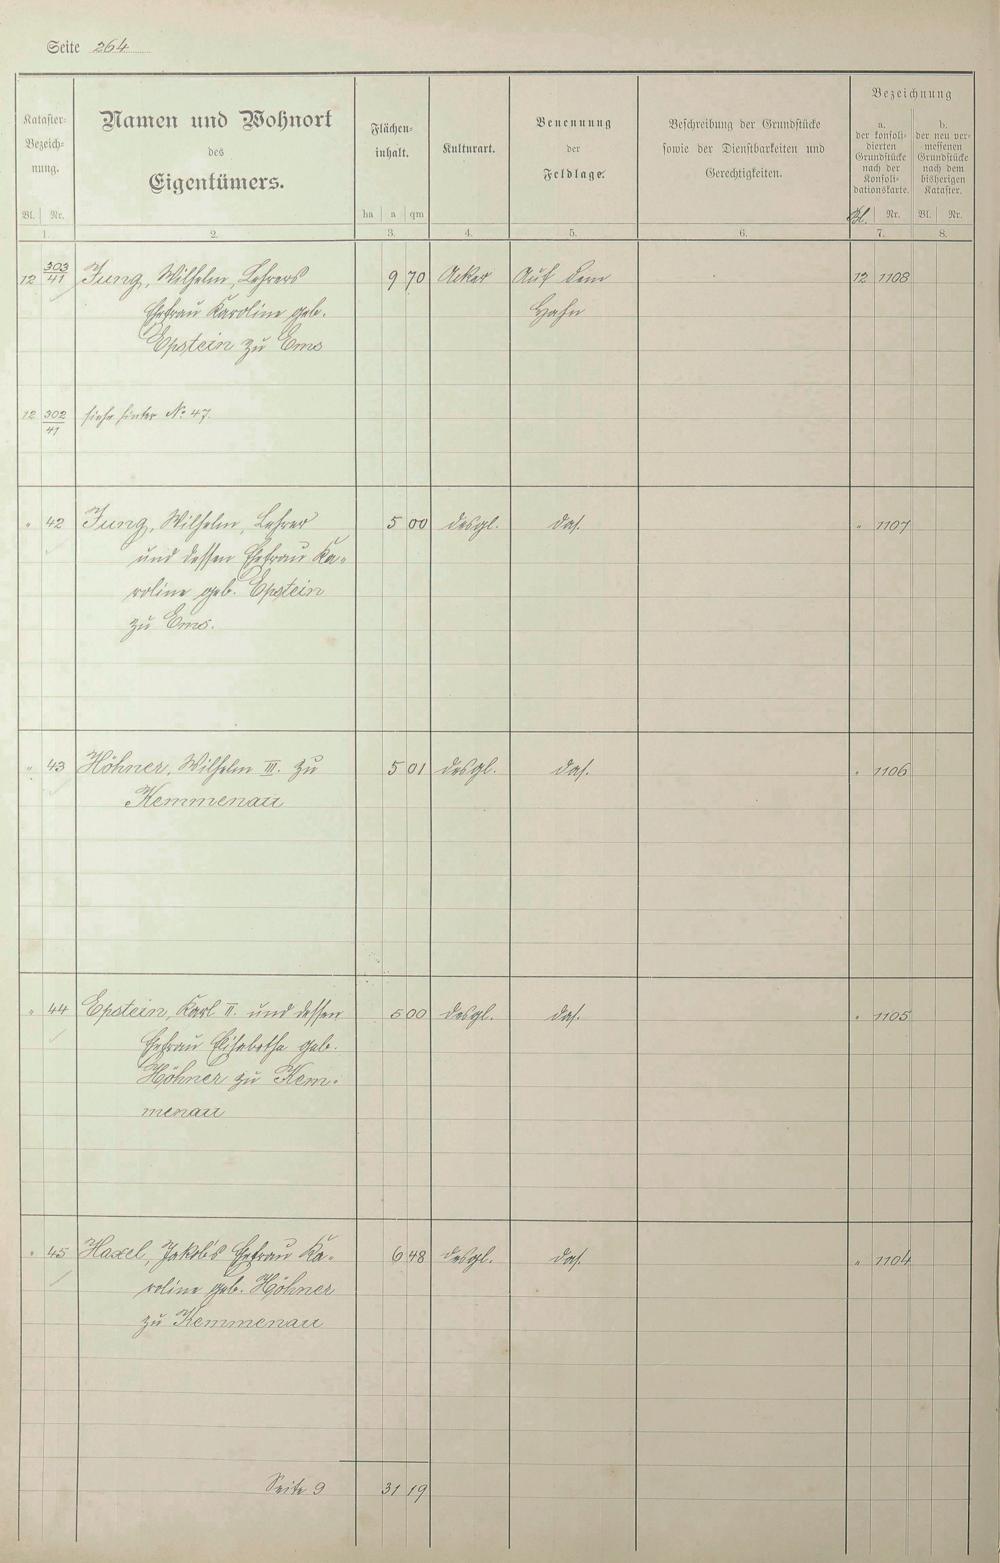 Seite 264
Kataster-Bezeichnung.
Namen und Wohnort
des
Eigentümers.
Flächeninhalt.
Kulturart.
Benennung
der
Feldlage.
Beschreibung der Grundstücke
sowie der Dienstbarkeiten und
Gerechtigkeiten.
Bezeichnung
a. der konsolidierten Grundstücke nach der Konsolidationskarte.
b. der neu vermessenen Grundstücke nach dem bisherigen Kataster.
Bl. Nr. ha a qm Bl. Nr. Bl. Nr.
1. 2. 3. 4. 5. 6. 7. 8.
12 303/41 Jung, Wilhelm, Lehrers 9 70 Acker Auf dem 12 1108
Ehefrau Karoline geb. Hahn
Epstein zu Ems
12 302/41 siehe hinter No 47.
" 42 Jung, Wilhelm, Lehrer 5 00 desgl. das. " 1107
und dessen Ehefrau Ka-
roline geb. Epstein
zu Ems.
" 43 Höhner, Wilhelm III. zu 5 01 desgl. das. " 1106
Kemmenau
" 44 Epstein, Karl II. und dessen 5 00 desgl. das. " 1105
Ehefrau Elisabetha geb.
Höhner zu Kem-
menau
" 45 Haxel, Jakob's Ehefrau Ka- 6 48 desgl. das. " 1104
roline geb. Höhner
zu Kemmenau
Seite 9 31 19